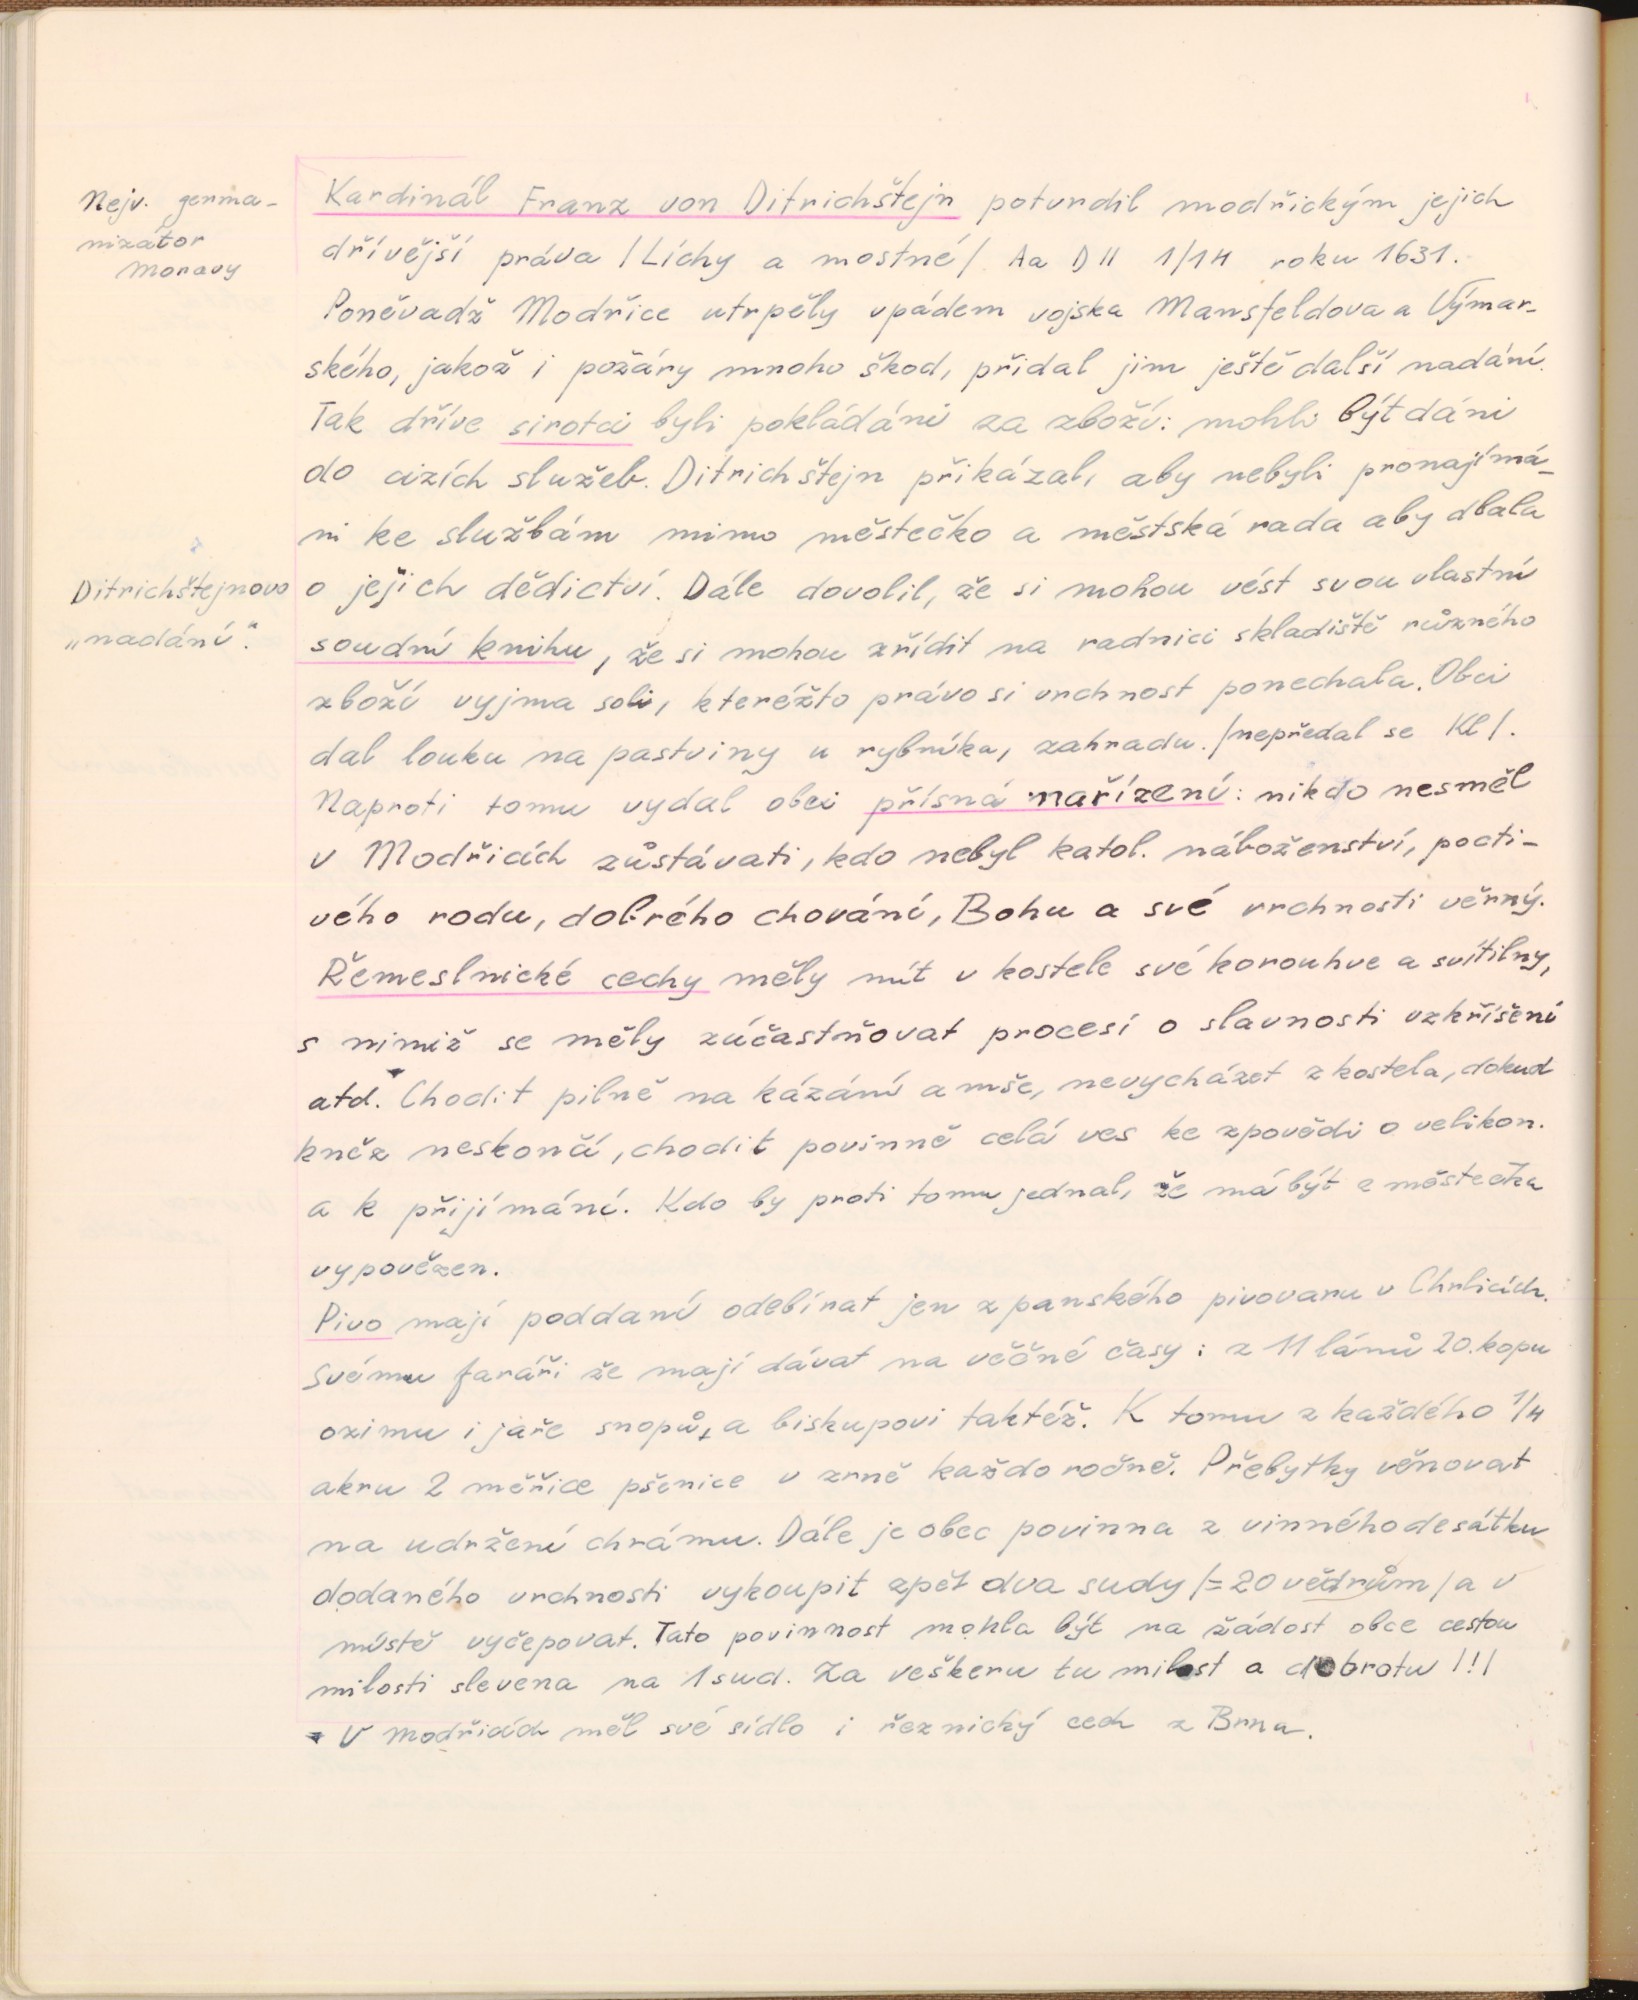 Nejv. germa-
nizátor
Moravy
Kardinál Franz von Ditrichštejn potvrdil modřickým jejich
dřívější práva /Líchy a mostné/ Aa D II 1/14 roku 1631.
Poněvadž Modřice utrpěly vpádem vojska Mansfeldova a Výmar-
ského, jakož i požáry mnoho škod, přidal jim ještě další nadání.
Tak dříve sirotci byli pokládáni za zboží: mohli být dáni
do cizích služeb. Ditrichštejn přikázal, aby nebyli pronajímá-
ni ke službám mimo městečko a městská rada aby dbala
Ditrichštejnovo
„nadání".
o jejich dědictví. Dále dovolil, že si mohou vést svou vlastní
soudní knihu, že si mohou zřídit na radnici skladiště různého
zboží vyjma soli, kteréžto právo si vrchnost ponechala. Obci
dal louku na pastviny u rybníka, zahradu. /nepředal se Kl/.
Naproti tomu vydal obci přísná nařízení: nikdo nesměl
v Modřicích zůstávati, kdo nebyl katol. náboženství, pocti-
vého rodu, dobrého chování, Bohu a své vrchnosti věrný.
Řemeslnické cechy měly mít v kostele své korouhve a svítilny,
s nimiž se měly zúčastňovat procesí o slavnosti vzkříšení
atd. Chodit pilně na kázání a mše, nevycházet z kostela, dokud
kněz neskončí, chodit povinně celá ves ke zpovědi o velikon.
a k přijímání. Kdo by proti tomu jednal, že má být z městečka
vypovězen.
Pivo mají poddaní odebírat jen z panského pivovaru v Chrlicích.
Svému faráři že mají dávat na věčné časy: z 11 lánů 20. kopu
ozimu i jaře snopů, a biskupovi taktéž. K tomu z každého 1/4
akru 2 měřice pšenice v zrně každoročně. Přebytky věnovat
na udržení chrámu. Dále je obec povinna z vinného desátku
dodaného vrchnosti vykoupit zpět dva sudy /= 20 vědrům/ a v
místě vyčepovat. Tato povinnost mohla být na žádost obce cestou
milosti slevena na 1 sud. Za veškeru tu milost a dobrotu /!/
V Modřicích měl své sídlo i řeznický cech z Brna.